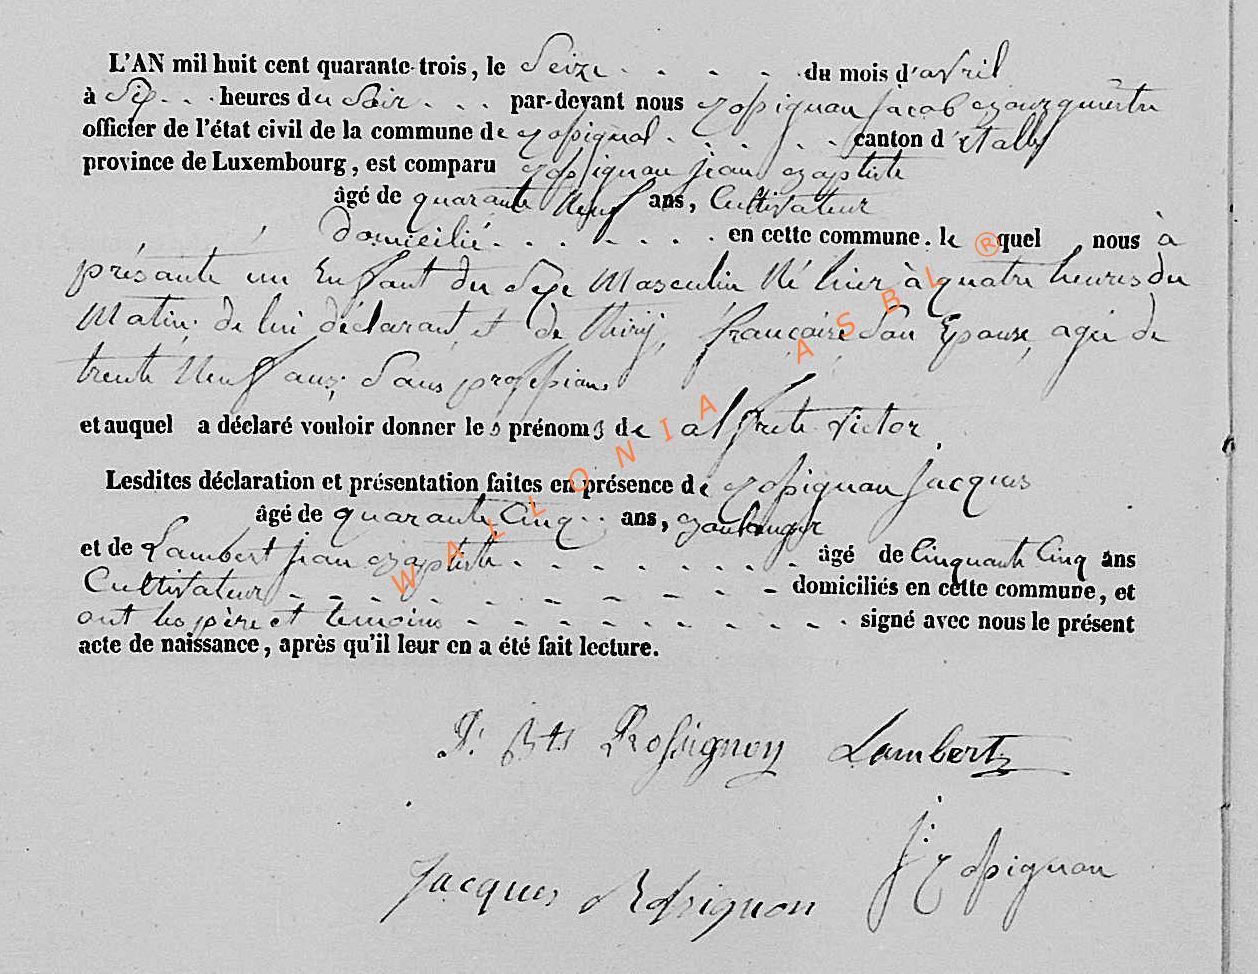 L'AN mil huit cent quarante-trois, le Seize . . . . du mois d'avril
à Six . . . heures du Soir . . . par-devant nous Rossignon jacob Bourguemestre
officier de l'état civil de la commune de Rossignol . . . . . canton d'etalle
province de Luxembourg, est comparu Rossignon jean Baptiste
âgé de quarante Neuf ans, Cultivateur
Domicilié . . . . . . . en cette commune. lequel nous à
présante un Enffant du Sexe Masculin Né hier à quatre heures du
Matin; de lui déclarant, et de Thirÿ, françoise Son Epouse, agée de
trente Neuff ans; Sans profession
et auquel a déclaré vouloir donner les prénoms de alfrete victor
Lesdites déclaration et présentation faites en présence de Rossignon jacques
âgé de quarante Cinq . . ans, Boulanger
et de Lambert jean Baptiste . . . . . . . . âgé de Cinquante Cinq ans
Cultivateur - - - - - - - - - domiciliés en cette commune, et
ont les père et temoins - - - - - - - - - signé avec nous le présent
acte de naissance, après qu'il leur en a été fait lecture.
WALLONIA ASBL ®
J. Bts Rossignon Lambert
J. Rossignon
jacques Rossignon